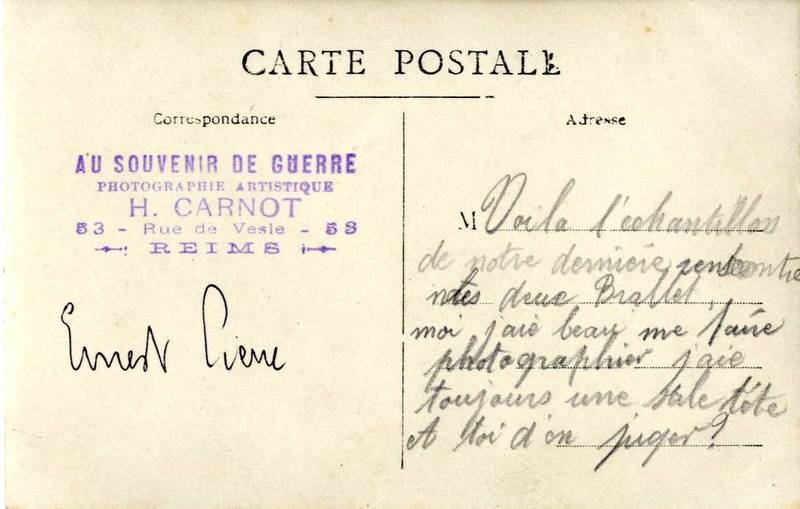 CARTE POSTALE
Correspondance
Adresse
AU SOUVENIR DE GUERRE
PHOTOGRAPHIE ARTISTIQUE
H. CARNOT
53 - Rue de Vesle - 53
REIMS
Ernest Pierre
M Voila l'echantillon
de notre dernière rencontre
deux Brallet,
moi jaie beau me faire
photographier jaie
toujours une sale tête
A toi d'en juger?